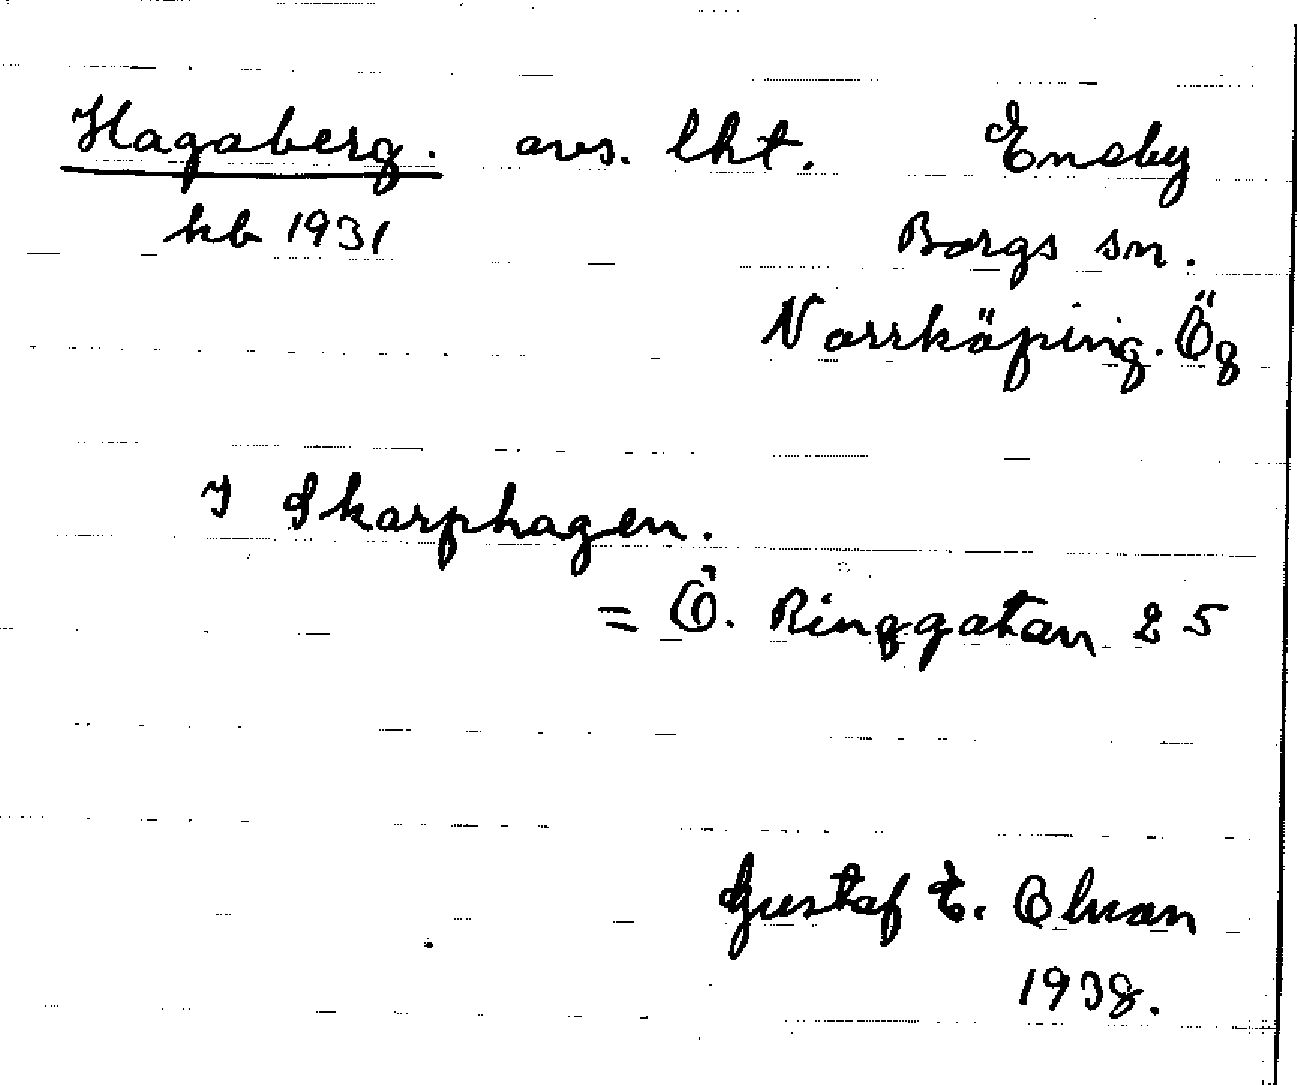 Hagaberg. avs. lht. Eneby
kb 1931 Borgs sn.
Norrköping. Ög
I Skarphagen.
= Ö. Ringgatan 25
Gustaf E. Olson
1938.